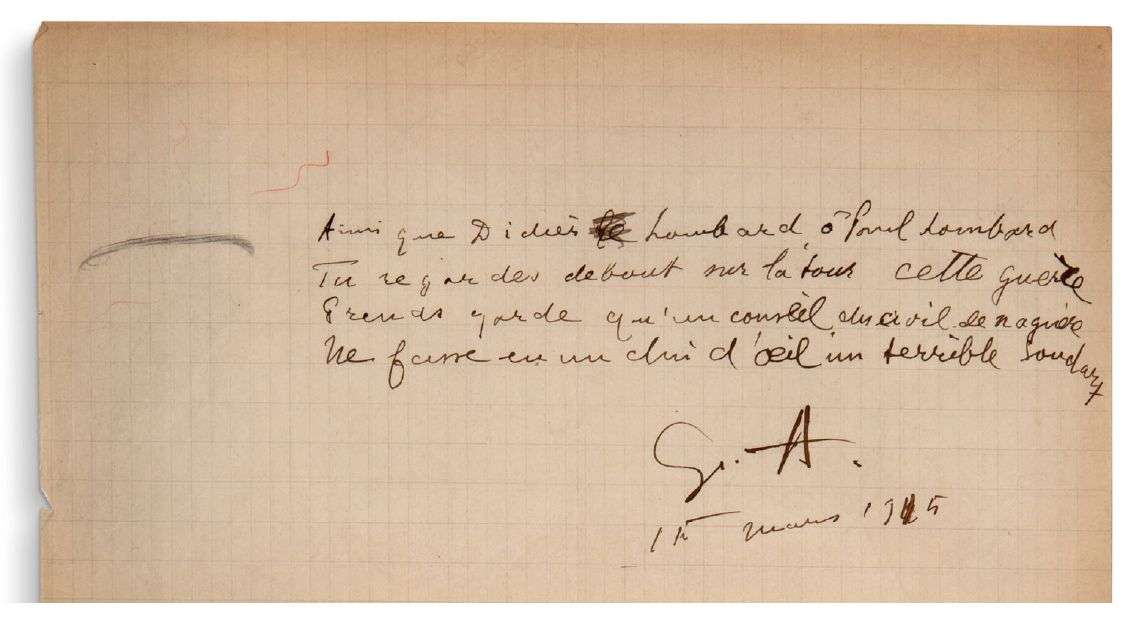 Ainsi que Didier Lombard, ô Paul Lombard
Tu regardes debout sur la tour cette guerre
Prends garde qu'un conseil du civil de naguère
Ne fasse en un clin d'œil un terrible soudart
G. A.
15 mars 1915